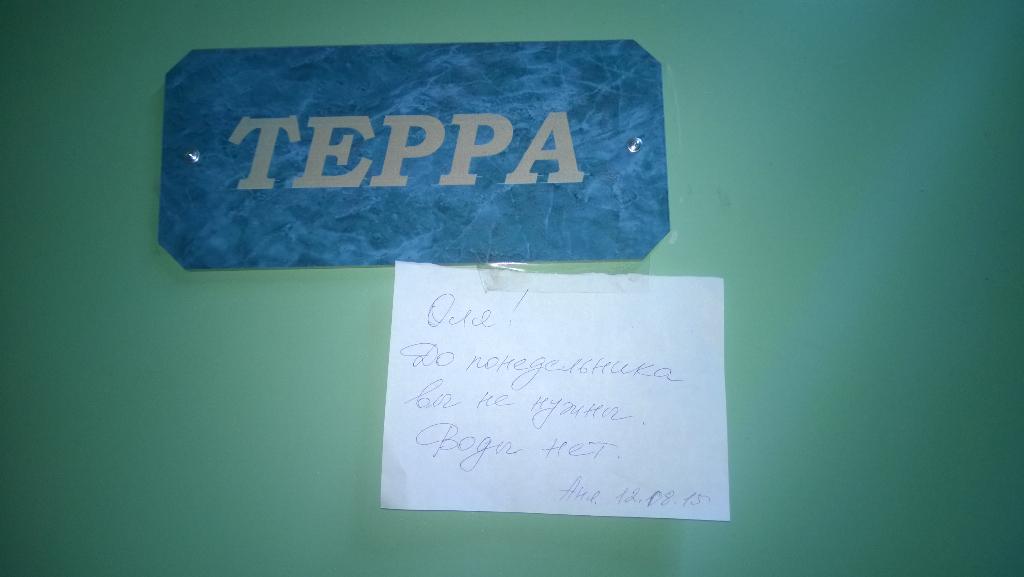 ТЕРРА
Оля!
До понедельника
вы не нужны.
Воды нет.
Аня. 12.08.15